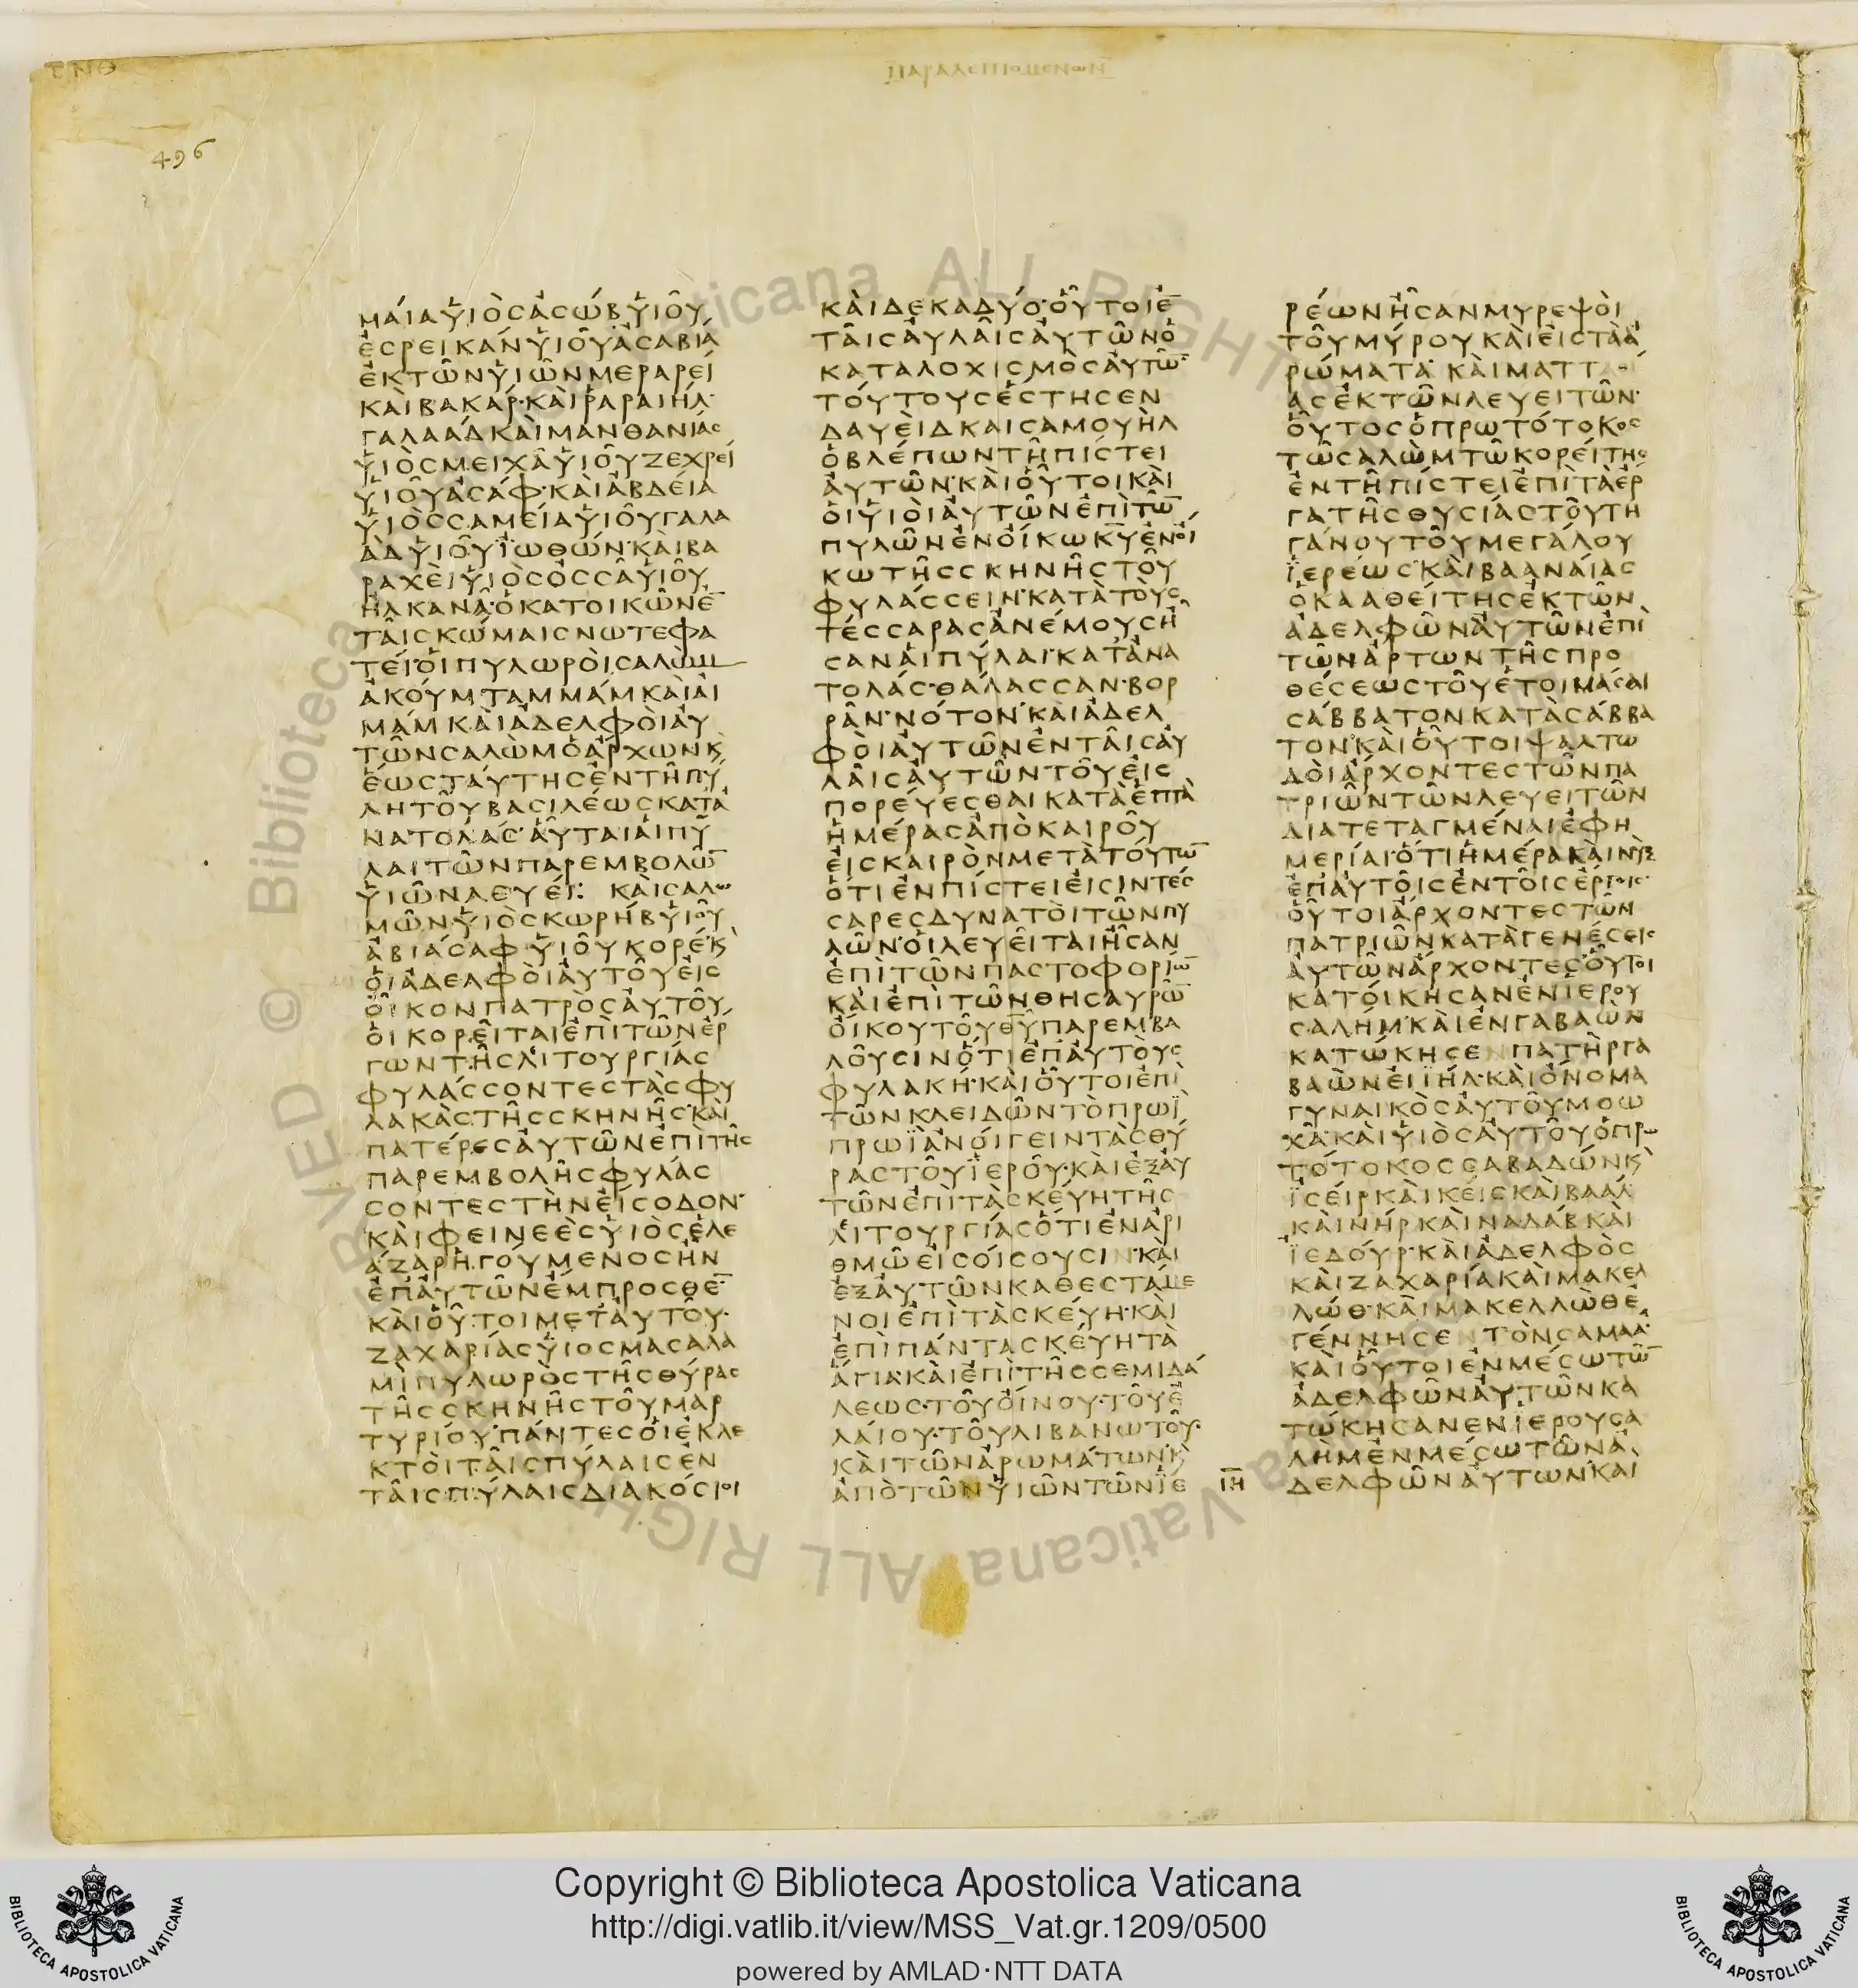 ΤΝΘ
ΠΑΡΑΛΕΙΠΟΜΕΝΩΝ
496
μάια ὑιὸς ἀσὼβ ὑιοῦ
ἐσρεικάν ὑιοῦ ἀσαβιά
ἐκ τῶν ὑιῶν μεραρεί
καὶ βακάρ· καὶ ραραιήλ·
γαλαάδ καὶ μανθανίας
ὑιὸς μειχᾶ ὑιοῦ ζεχρεί
ὑιοῦ ἀσάφ· καὶ ἀβδειά
ὑιὸς σαμεία ὑιοῦ γαλα
ὰδ ὑιοῦ ϊωθών· καὶ βα
ραχὲι ὑιὸς ὀσσᾶ ὑιοῦ
ηλκανᾶ· ὁ κατοικῶν ἐ̅
τᾶις κώμαις νωτεφα
τεί· ὁι πυλωρὸι σαλὼμ
ἀκούμ· ταμμάμ καὶ ἀι
μάμ κὰι ἀδελφὸι ἀυ
τῶν σαλὼμ ὁ ἄρχων κ
ἑως τάυτης ἐν τῆ πύ
λη τοῦ βασιλέως κατ ἀ
νατολάς· ἁῦται ἁι πύ
λαι τῶν παρεμβολω̅
ὑιῶν λευέι: κὰι σαλω
μῶν ὑιὸς κωρήβ ὑιοῦ
ἀβιάσαφ ὑιοῦ κορέ· κ
ὁι ἀδελφὸι ἀυτοῦ ἐις
ὀῖκον πατρὸς ἀυτοῦ
ὁι κορεῖται ἐπὶ τῶν ἔρ
γων τῆς λιτουργίας
φυλάσσοντες τὰς φυ
λακὰς τῆς σκηνῆς· κὰι
πατέρες ἀυτῶν ἐπὶ τῆς
παρεμβολῆς φυλάσ
σοντες τὴν ἔισοδον·
κὰι φεινεὲς ὑιὸς ἐλε
άζαρ ἡγούμενος ἦν
ἐπ ἀυτῶν ἔμπροσθε̅
κὰι ὁῦτοι μετ ἀυτοῦ·
ζαχαρίας ὑιος μασαλα
μὶ πυλωρὸς τῆς θύρας
τῆς σκηνῆς τοῦ μαρ
τυρίου· πάντες ὁι ἐκλε
κτὸι τᾶις πύλαις ἐν
τᾶις πύλαις διακόσιοι
κὰι δεκαδύο· ὁῦτοι ἐ̅
τᾶις ἀυλᾶις ἀυτῶν ὁ
καταλοχισμὸς ἀυτω̅
τούτους ἔστησεν
δαυεὶδ και σαμουὴλ
ὁ βλέπων τῆ πίστει
ἀυτῶν· κὰι ὁῦτοι κὰι
ὁι ὑιὸι ἀυτῶν ἐπὶ τω̅
πυλῶν ἐν ὀίκω κ̅υ̅ ἐν ὀί
κω τῆς σκηνῆς τοῦ
φυλάσσειν· κατὰ τὸυς
τέσσαρας ἀνέμους ἦ
σαν ἁι πύλαι· κατ ἀνα
τολάς· θάλασσαν· βορ
ρᾶν· νότον· κὰι ἀδελ
φὸι ἀυτῶν ἐν τᾶις ἀυ
λᾶις ἀυτῶν τοῦ ἐις
πορέυεσθαι κατὰ ἑπτὰ
ἡμέρας ἀπὸ καιροῦ
ἐις καιρὸν μετὰ τόυτω̅
ὅτι ἐν πίστει ἐισὶν τέσ
σαρες δυνατὸι τῶν πυ
λῶν· ὁι λευεῖται ἦσαν
ἐπὶ τῶν παστοφορίω̅
κὰι ἐπὶ τῶν θησαυρω̅
ὀίκου τοῦ θ̅υ̅ παρεμβα
λοῦσιν ὅτι ἐπ ἀυτὸυς
φυλακή· κὰι ὁῦτοι ἐπὶ
τῶν κλειδῶν τὸ πρωϊ
πρωϊ ἀνόιγειν τὰς θύ
ρας τοῦ ϊεροῦ· κὰι ἐξ ἀυ
τῶν ἐπὶ τὰ σκέυη τῆς
λιτουργίας ὅτι ἐν ἀρι
θμῶ ἐισόισουσιν· κὰι
ἐξ ἀυτῶν καθεσταμε
νοι ἐπὶ τὰ σκέυη· κὰι
ἐπὶ πάντα σκέυη τὰ
ἅγια· κὰι ἐπὶ τῆς σεμιδά
λεως· τοῦ ὀίνου· τοῦ ἐ
λάιου· τοῦ λιβανωτοῦ·
κὰι τῶν ἀρωμάτων· κ
ἀπὸ τῶν ὑιῶν τῶν ϊε
ρέων ἦσαν μυρεψὸι
τοῦ μύρου κὰι ἐις τὰ ἀ
ρώματα· κὰι ματτ
ας ἐκ τῶν λευειτῶν·
ὁῦτος ὁ πρωτότοκος
τῶ σαλὼμ τῶ κορείτης
ἐν τῆ πίστει ἐπὶ τὰ ἔρ
γα τῆς θυσίας τοῦ τη
γάνου τοῦ μεγάλου
ϊερέως· κὰι βααναίας
ὁ κααθείτης ἐκ τῶν
ἀδελφῶν ἀυτῶν ἐπὶ
τῶν ἄρτων τῆς προ
θέσεως τοῦ ἑτοιμάσαι
σάββατον κατὰ σάββα
τον· κὰι ὁῦτοι ψαλτω
δὸι ἄρχοντες τῶν πα
τριῶν τῶν λευειτῶν
διατεταγμέναι ἐφη
μερίαι· ὅτι ἡμέρα κὰι νὺξ
ἐπ ἀυτοῖς ἐν τοῖς ἔργοις·
ὁῦτοι ἄρχοντες τῶν
πατριῶν κατὰ γενέσεις
ἀυτῶν ἄρχοντες· ὁῦτοι
κατόικησαν ἐν ϊερου
σαλήμ· κὰι ἐν γαβαὼν
κατώκησεν πατὴρ γα
βαὼν ἐιϊήλ· κὰι ὄνομα
γυναικὸς ἀυτοῦ μοω
χᾶ· κὰι ὑιὸς ἀυτοῦ ὁ πρω
τότοκος σαβαδών κ
ϊσείρ κὰι κείς κὰι βαάλ
κὰι νήρ κὰι ναδάβ κὰι
ϊεδούρ· κὰι ἀδελφὸς
κὰι ζαχαρία κὰι μακελ
λώθ· κὰι μακελλὼθ ἐ
γέννησεν τὸν σαμαά·
κὰι ὁῦτοι ἐν μέσω τω̅
ἀδελφῶν ἀυτῶν κα
τώκησαν ἐν ϊερουσα
λὴμ ἐν μέσω τῶν ἀ
ΙΗ δελφῶν ἀυτων· κὰι
Copyright © Biblioteca Apostolica Vaticana
http://digi.vatlib.it/view/MSS_Vat.gr.1209/0500
powered by AMLAD·NTT DATA
BIBLIOTECA APOSTOLICA VATICANA
BIBLIOTECA APOSTOLICA VATICANA